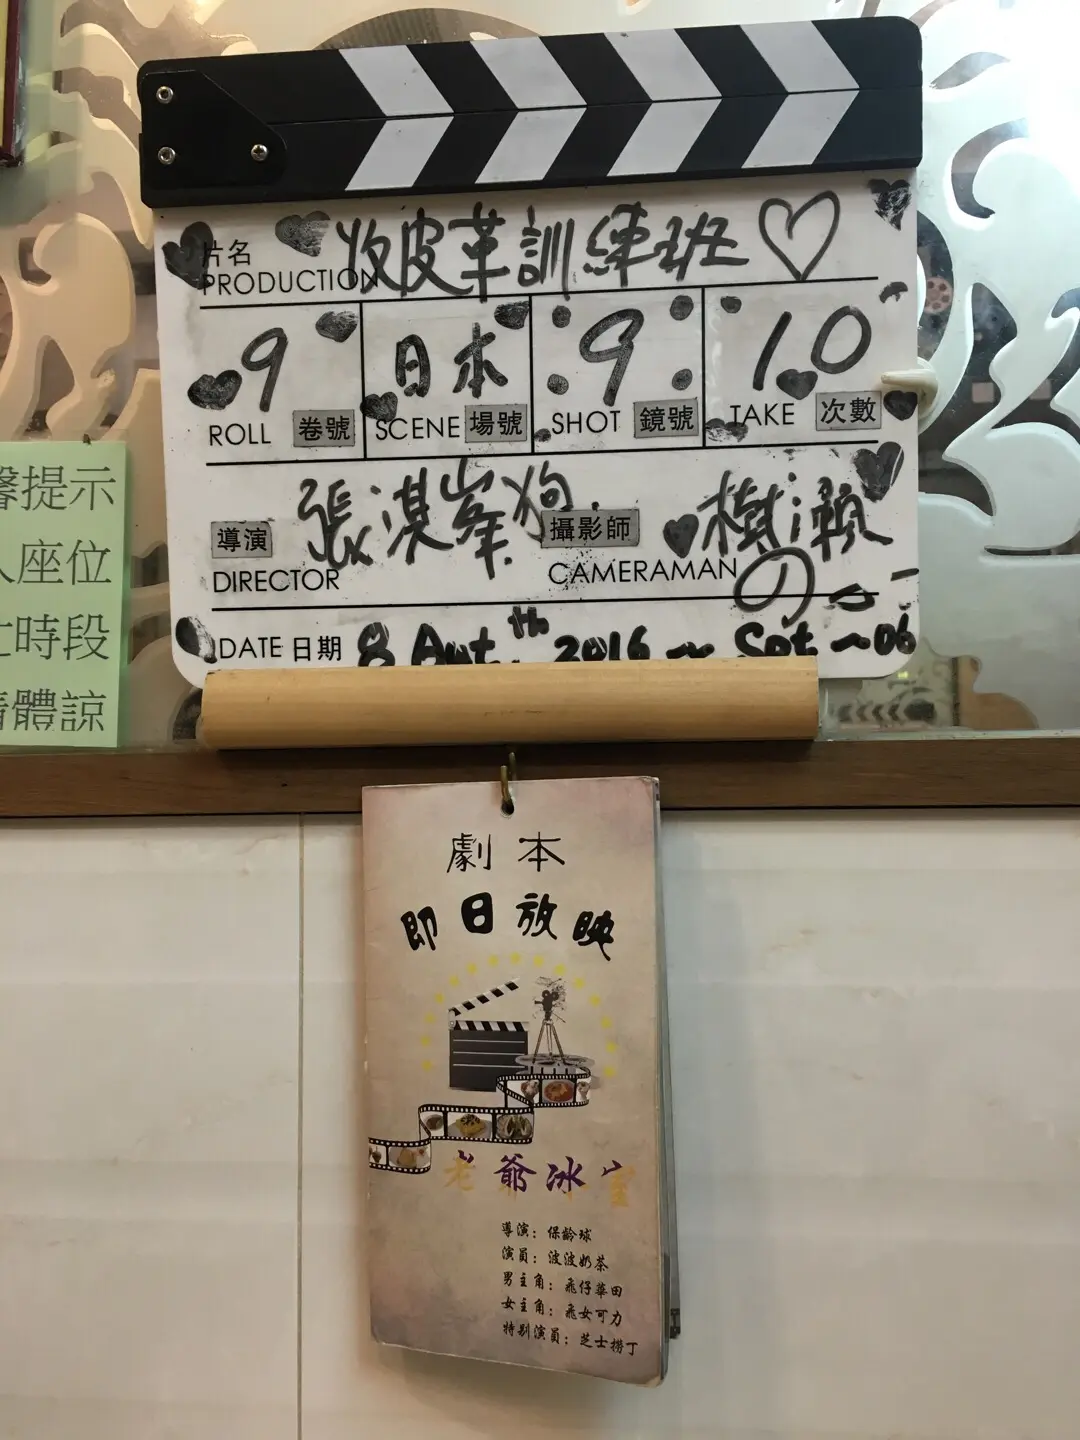 片名
PRODUCTION
皮革訓練班
9 日本 9 10
ROLL 卷號 SCENE 場號 SHOT 鏡號 TAKE 次數
導演 張淇峯狗 攝影師 樹瀨
DIRECTOR CAMERAMAN の
DATE 日期 8 2016 ~ ~06
提示
座位
時段
體諒
劇本
即日放映
老爺冰室
導演：保齡球
演員：波波奶茶
男主角：飛仔華田
女主角：飛女可力
特別演員：芝士撈丁